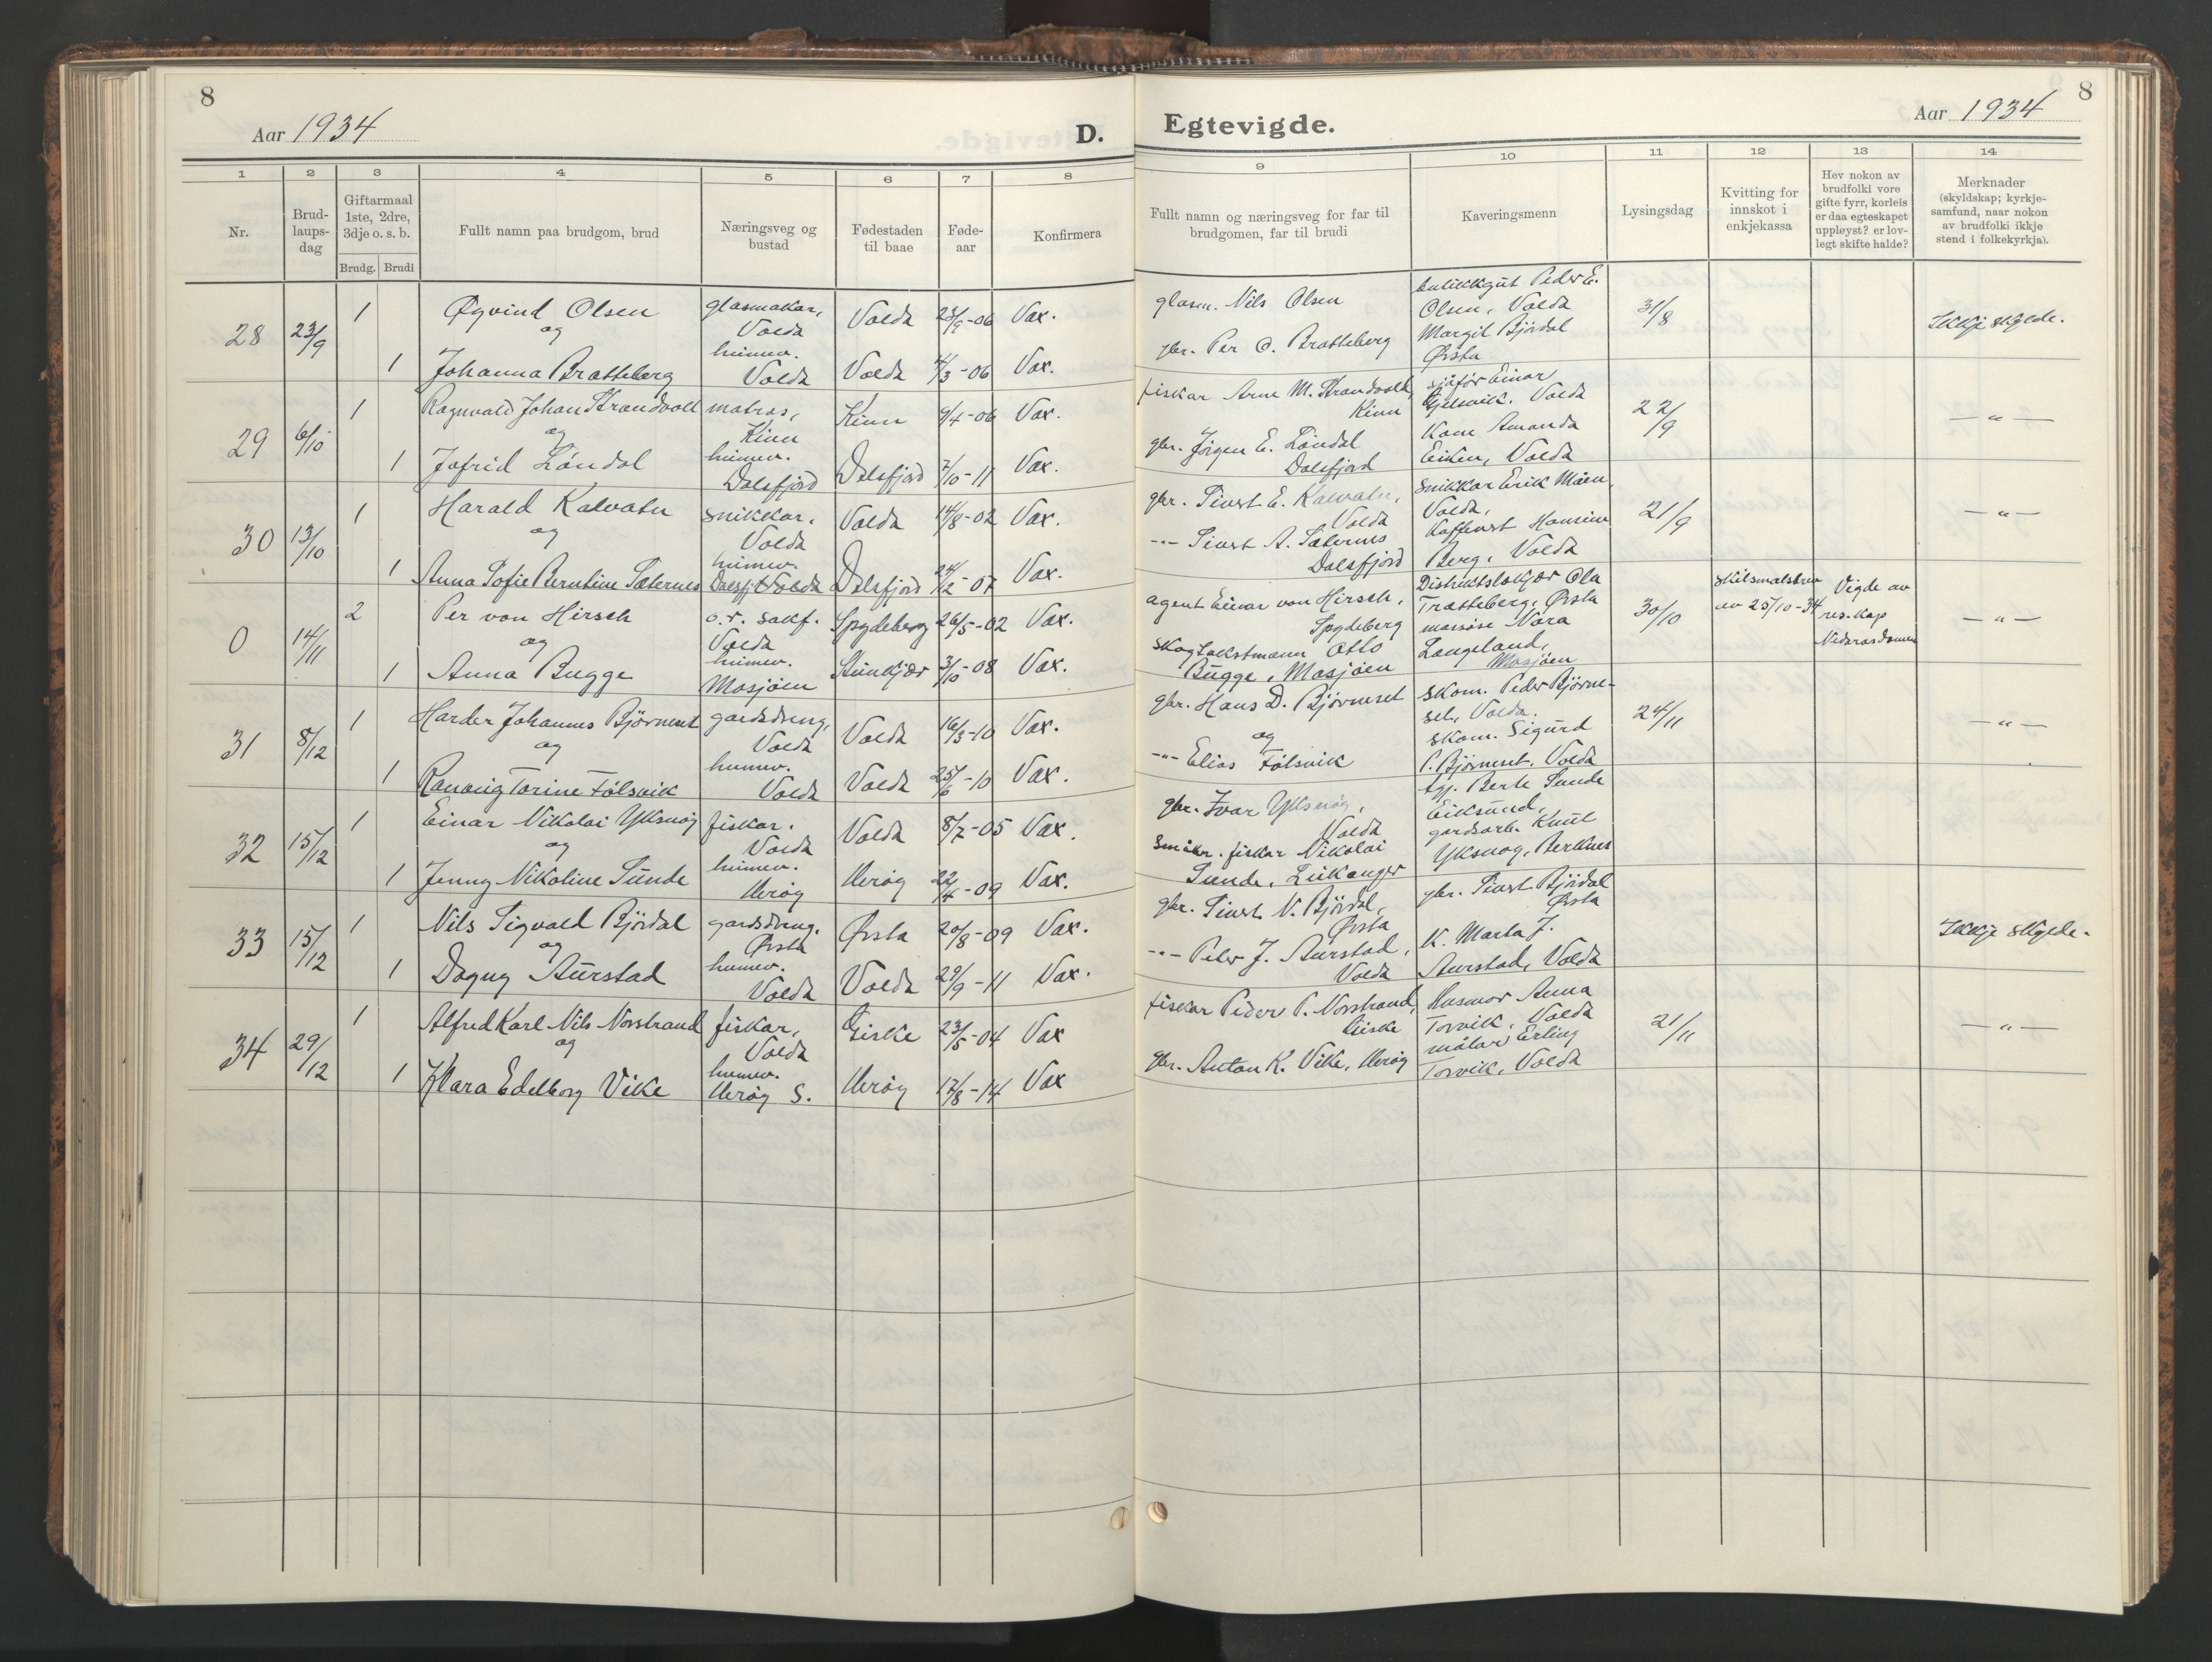 8
Aar 1934
D.
Egtevigde.
Aar 1934
8
1 2 3 4 5 6 7 8 9 10 11 12 13 14
Nr.
Brud-
laups-
dag
Giftarmaal
1ste, 2dre,
3dje o. s. b.
Brudg. Brudi
Fullt namn paa brudgom, brud
Næringsveg og
bustad
Fødestaden
til baae
Føde-
aar
Konfirmera
Fullt namn og næringsveg for far til
brudgomen, far til brudi
Kaveringsmenn
Lysingsdag
Kvitting for
innskot i
enkjekassa
Hev nokon av
brudfolki vore
gifte fyrr, korleis
er daa egteskapet
uppløyst? er lov-
legt skifte halde?
Merknader
(skyldskap; kyrkje-
samfund, naar nokon
av brudfolki ikkje
stend i folkekyrkja).
28 23/9
1 Øyvind Olsen glasmakar, Volda Volda 23/9-06 Vax.
og
1 Johanna Bratteberg heimev. Volda Volda 4/3-06 Vax.
glasm. Nils Olsen
gbr. Per O. Bratteberg
butikkgut Peder E.
Olsen, Volda
Margit Bjørdal
Ørsta
31/8
Ikkje skylde.
29 6/10
1 Ragnvald Johan Strandvoll matros, Kinn Kinn 9/4-06 Vax.
og
1 Jofrid Løndal heimev. Dalsfjord Dalsfjord 7/10-11 Vax.
fiskar Arne M. Strandvoll,
Kinn
gbr. Jørgen E. Løndal
Dalsfjord
sjåfør Einar
Gjelsvik. Volda
Kone Amanda
Eiken, Volda
22/9
— " —
30 13/10
1 Harald Kalvatn snikkar. Volda Volda 14/8-02 Vax.
og
1 Anna Sofie Berntine Sæternes heimev. Dalsfj & Volda Dalsfjord 24/12-07 Vax.
gbr. Sivert E. Kalvatn,
Volda
-"- Sivert A. Sæternes
Dalsfjord
snikkar Erik Måen,
Volda,
Kaffevert Hansine
Berg, Volda
21/9
— " —
0 14/11
2 Per von Hirsch o.r. sakf. Volda Spydeberg 26/5-02 Vax.
og
1 Anna Bugge heimev. Mosjøen Steinkjær 3/10-08 Vax.
agent Einar von Hirsch,
Spydeberg
Skogtakstmann Otto
Bugge, Mosjøen
Distriktslækjar Ola
Trætteberg, Ørsta
massøse Nora
Langeland,
Mosjøen
30/10
skilsmålsbrev
av 25/10-34
Vigde av
res.kap
Nidarosdomen
— " —
31 8/12
1 Harder Johannes Bjørneset gardsdreng, Volda Volda 16/3-10 Vax.
og
1 Ranveig Torine Følsvik heimev. Volda Volda 25/6-10 Vax.
gbr. Hans D. Bjørneset
og
-"- Elias Følsvik
skom. Peder Bjørne-
set, Volda.
skom. Sigurd
P. Bjørneset, Volda
24/11
— " —
32 15/12
1 Einar Nikolai Yksnøy fiskar. Volda Volda 8/7-05 Vax.
og
1 Jenny Nikoline Sunde heimev. Herøy Herøy 22/4-09 Vax.
gbr. Ivar Yksnøy,
Volda
småbr. fiskar Nikolai
Sunde, Leikanger
tgj. Berte Sunde
Eiksund,
gardsarb. Knut
Yksnøy, Berknes
33 15/12
1 Nils Sigvald Bjørdal gardsdreng. Ørsta Ørsta 20/8-09 Vax.
og
1 Dagny Aurstad heimev. Volda Volda 29/9-11 Vax.
gbr. Sivert N. Bjørdal,
Ørsta
-"- Peder J. Aurstad,
Volda
gbr. Sivert Bjørdal
Ørsta
K. Marta J.
Aurstad, Volda
Ikkje skylde.
34 29/12
1 Alfred Karl Nils Norstrand fiskar, Volda Giske 23/5-04 Vax
og
1 Klara Edelborg Vike heimev. Herøy S. Herøy 17/8-14 Vax
fiskar Peder P. Norstrand,
Giske
gbr. Anton K. Vike, Herøy
Husmor Anna
Torvik, Volda
målar Erling
Torvik, Volda
21/11
— " —